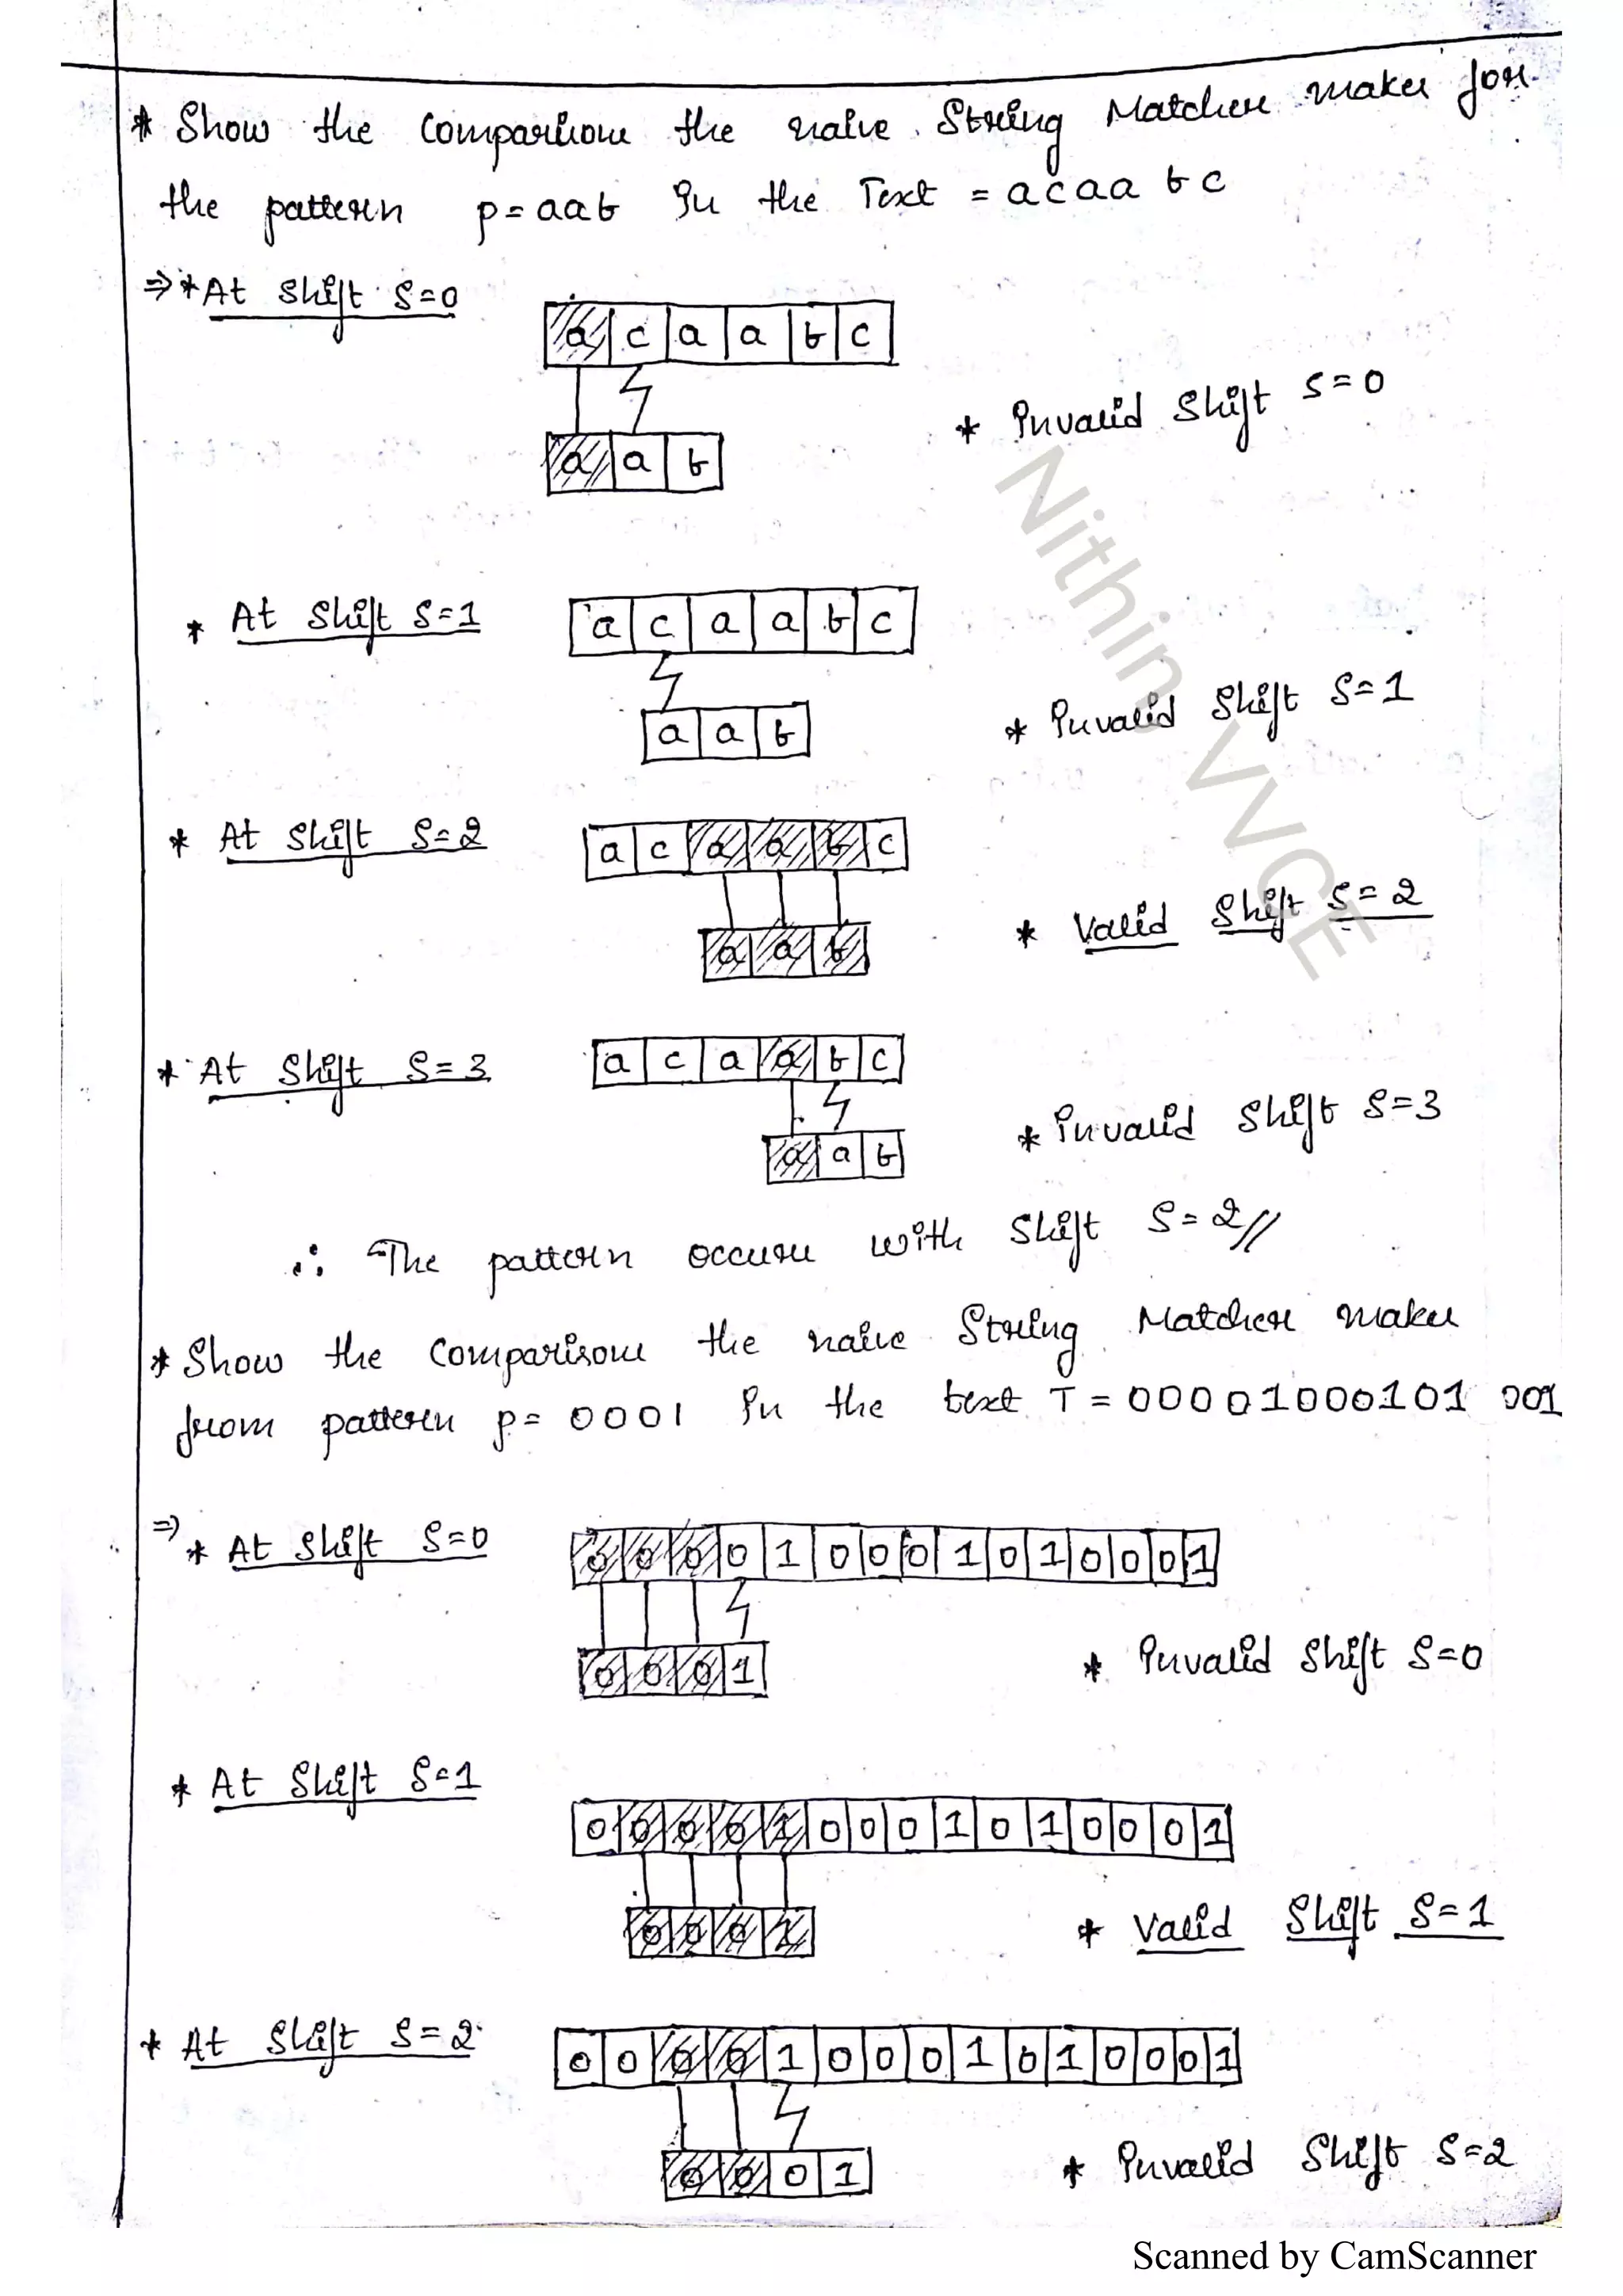 * Show the comparisons the naive String Matcher makes for
the pattern p=aab In the Text = acaabc
⇒ * At Shift S=0
a c a a b c
a a b
* Invalid Shift S=0
* At Shift S=1
a c a a b c
a a b
* Invalid Shift S=1
* At Shift S=2
a c a a b c
a a b
* Valid Shift S=2
* At Shift S=3
a c a a b c
a a b
* Invalid Shift S=3
∴ The pattern occurs with Shift S=2//
* Show the comparisons the naive String Matcher makes
from pattern p= 0001 In the text T = 00001000101 001
⇒ * At Shift S=0
0 0 0 0 1 0 0 0 1 0 1 0 0 0 1
0 0 0 1
* Invalid Shift S=0
* At Shift S=1
0 0 0 0 1 0 0 0 1 0 1 0 0 0 1
0 0 0 1
* Valid Shift S=1
* At Shift S=2
0 0 0 0 1 0 0 0 1 0 1 0 0 0 1
0 0 0 1
* Invalid Shift S=2
Nithin VVCE
Scanned by CamScanner